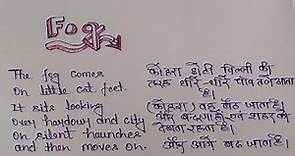 Fog
The fog comes
On little cat feet.
It sits looking
Over and city
On silent haunches
and then moves on.
कोहरा छोटी बिल्ली की
तरह धीरे-धीरे पाँव आता
है।
(कोहरा) वह बैठ जाता है।
और बंदरगाह एवं शहर को
देखता रहता है।
और आगे बढ़ जाता है।